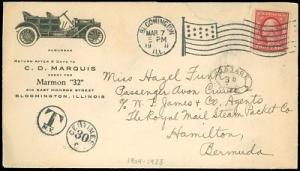 SUBURBAN
RETURN AFTER 5 DAYS TO
C. D. MARQUIS
AGENT FOR
Marmon "32"
BLOOMINGTON, ILLINOIS
BLOOMINGTON
MAR 7
PM
19 11
ILL.
Miss Hazel Funk
Passenger Avon Cruise
c/o W. T. James & Co., Agents
The Royal Mail Steam Packet Co
Hamilton,
Bermuda
T
CENTIMES
30